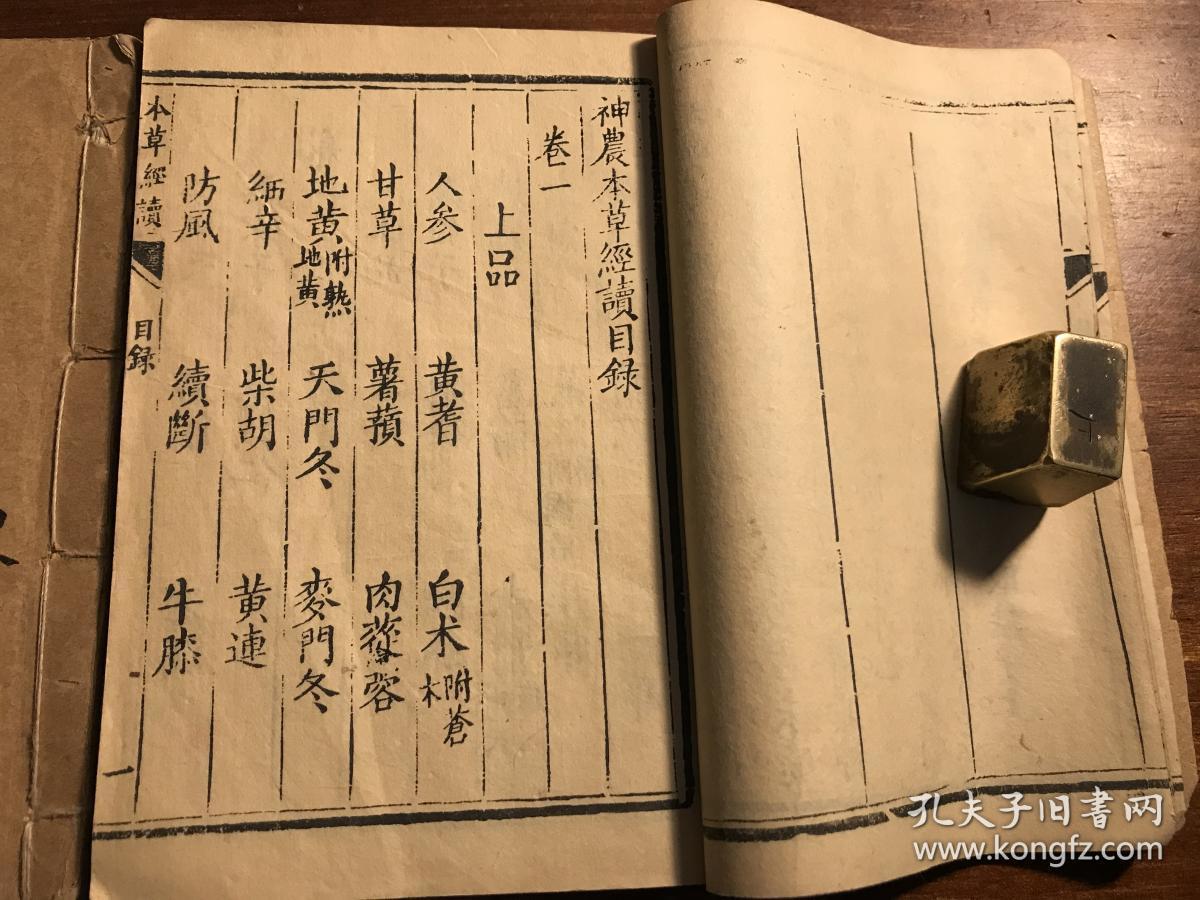 神農本草經讀目録
卷一
上品
人參 黄耆 白术附蒼术
甘草 薯蕷 肉蓯蓉
地黄附熟地黄 天門冬 麥門冬
細辛 柴胡 黄連
防風 續斷 牛膝
本草經讀 目録 一
孔夫子旧书网
www.kongfz.com